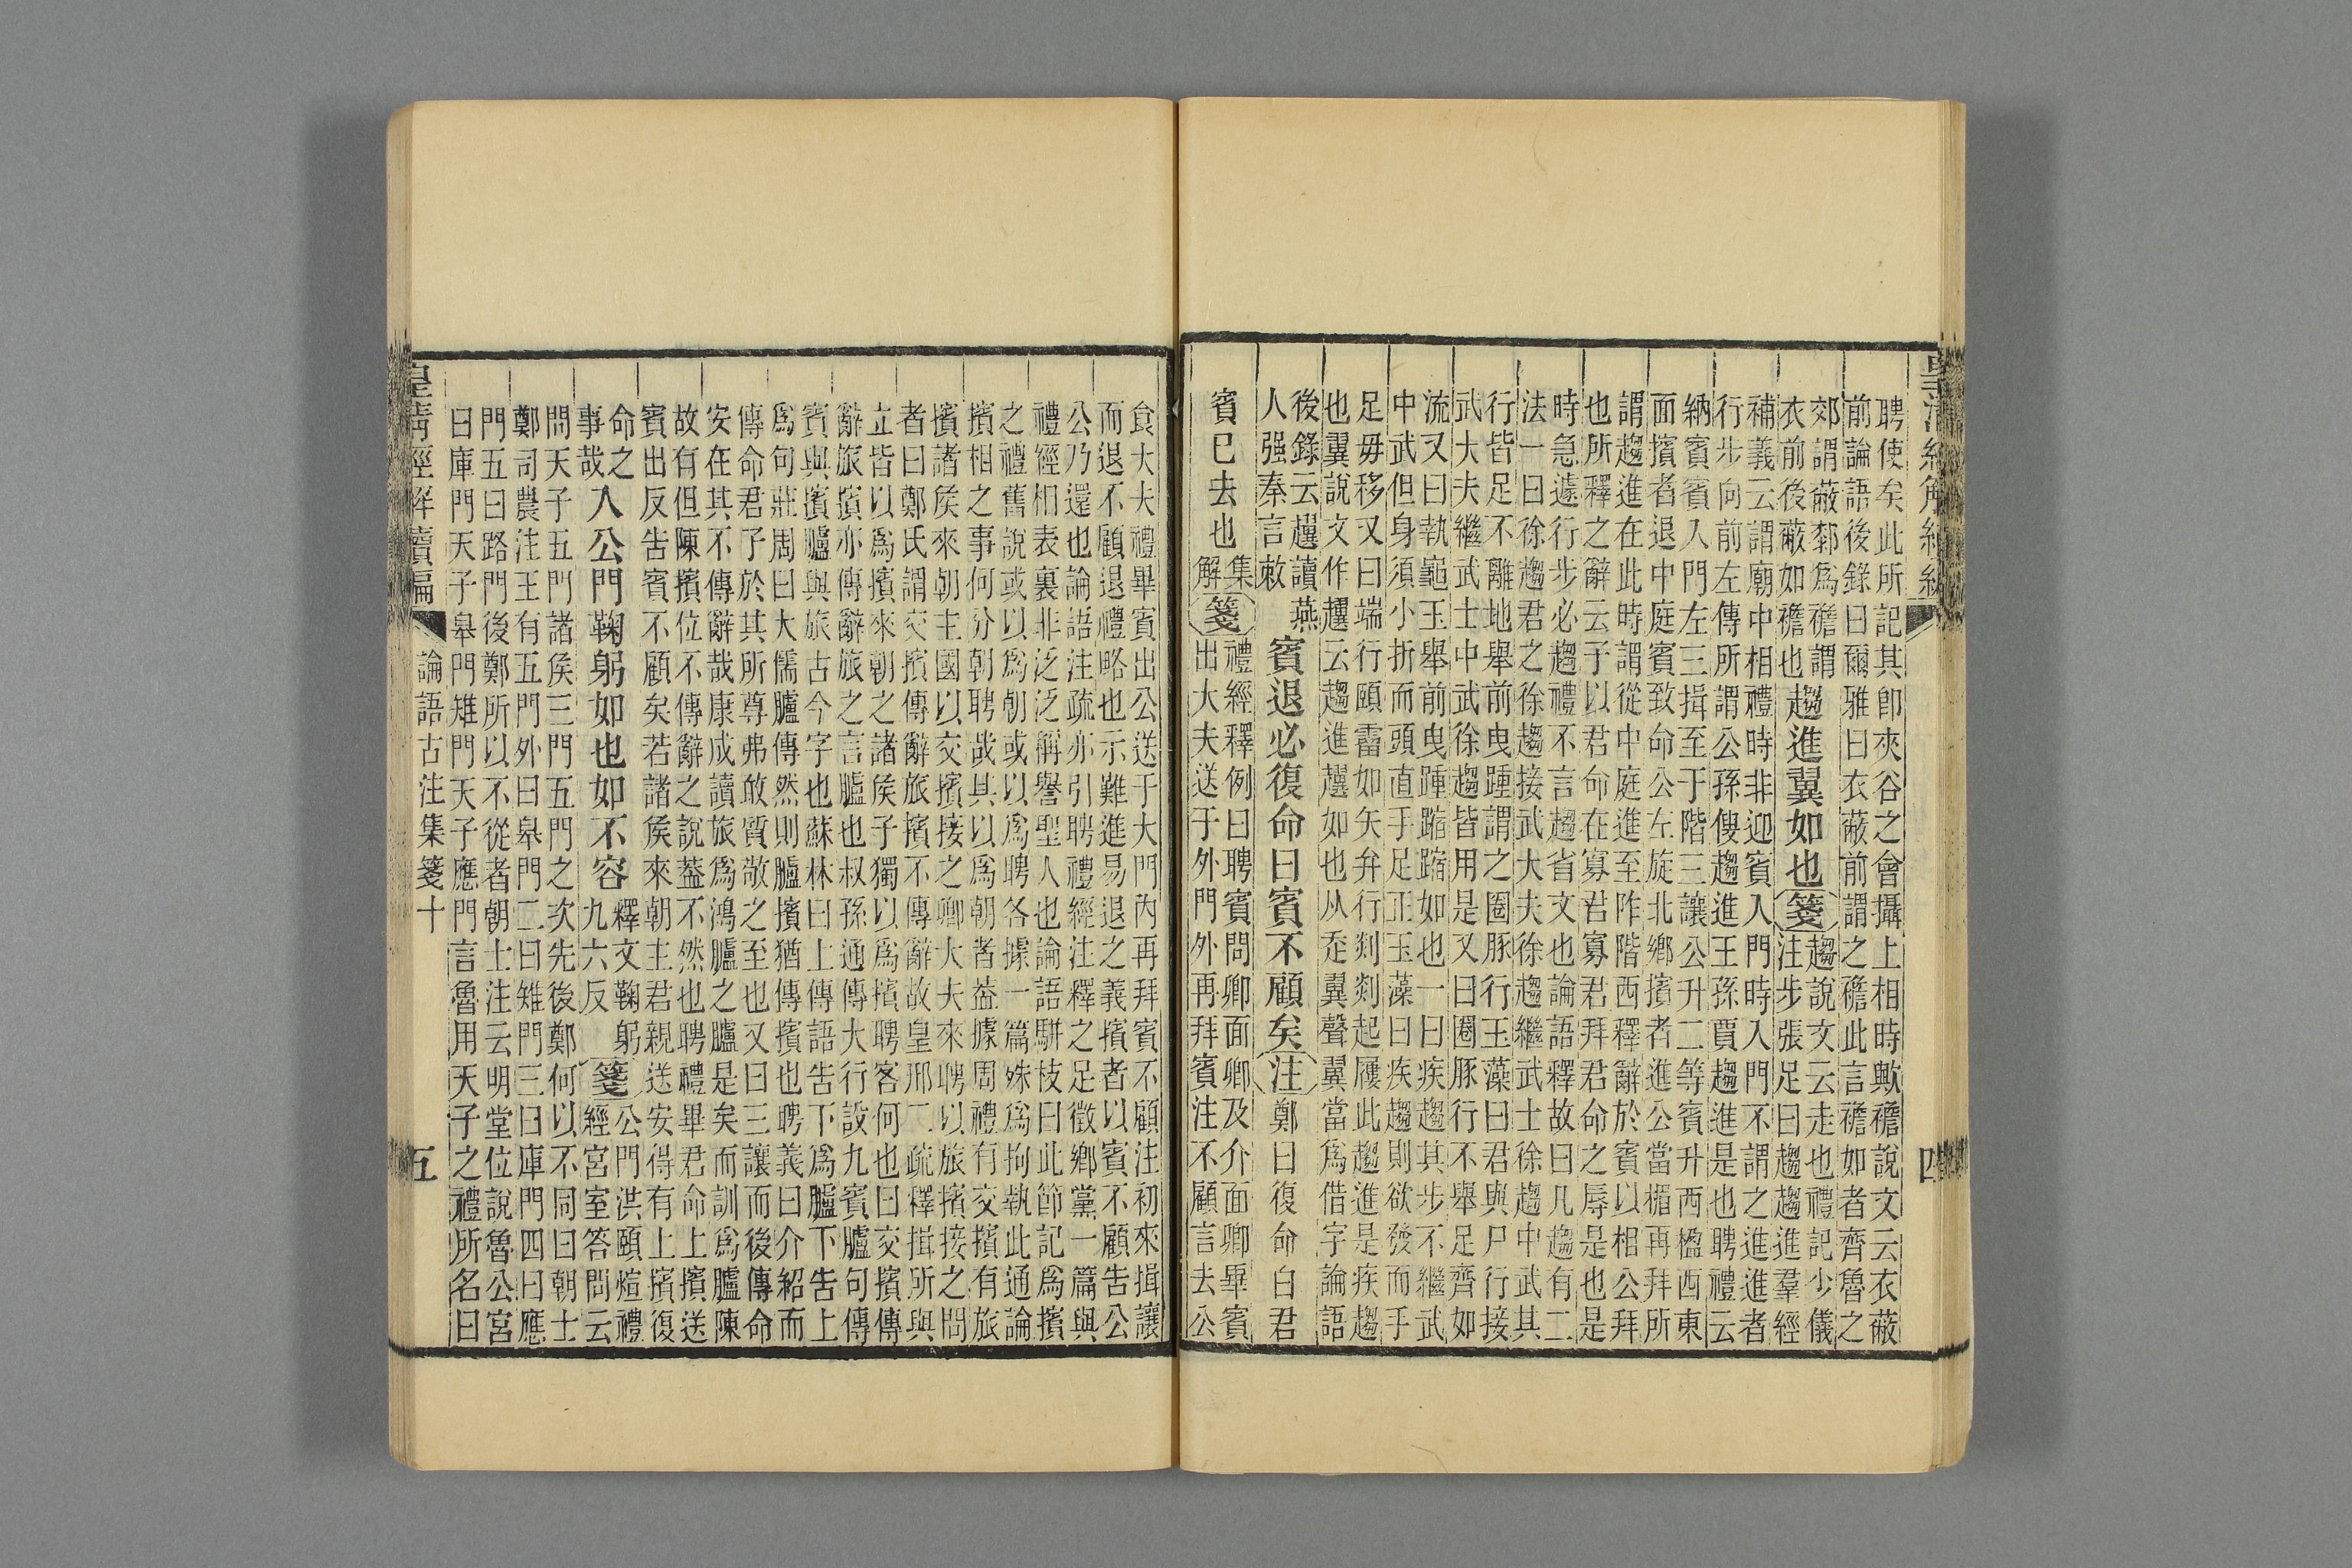 聘使矣此所記其卽夾谷之會攝上相時歟襜說文云衣蔽
前論語後錄曰爾雅曰衣蔽前謂之襜此言襜如者齊魯之
郊謂蔽䣛爲襜襜謂
衣前後蔽如襜也
趨進翼如也
箋
趨說文云走也禮記少儀
注步張足曰趨趨進羣經
補義云謂廟中相禮時非迎賓入門時入門不謂之進進者
行步向前左傳所謂公孫傁趨進王孫賈趨進是也聘禮云
納賓賓入門左三揖至于階三讓公升二等賓升西楹西東
面擯者退中庭賓致命公左旋北鄉擯者進公當楣再拜所
謂趨進在此時謂從中庭進至阼階西釋辭於賓以相公拜
也所釋之辭云子以君命在寡君寡君拜君命之辱是也是
時急遽行步必趨禮不言趨省文也論語釋故曰凡趨有二
法一曰徐趨君之徐趨接武大夫徐趨繼武士徐趨中武其
行皆足不離地舉前曳踵謂之圈豚行玉藻曰君與尸行接
武大夫繼武士中武徐趨皆用是又曰圈豚行不舉足齊如
流又曰執龜玉舉前曳踵蹜蹜如也一曰疾趨其步不繼武
中武但身須小折而頭直手足正玉藻曰疾趨則欲發而手
足毋移又曰端行頤霤如矢弁行剡剡起屨此趨進是疾趨
也翼說文作趩云趨進趩如也从走翼聲翼當爲借字論語
後錄云趩讀燕
人强秦言敕
賓退必復命曰賓不顧矣
注
鄭曰復命白君
賓已去也
集
解
箋
禮經釋例曰聘賓問卿面卿及介面卿畢賓
出大夫送于外門外再拜賓注不顧言去公
食大夫禮畢賓出公送于大門內再拜賓不顧注初來揖讓
而退不顧退禮略也示難進易退之義擯者以賓不顧告公
公乃還也論語注疏亦引聘禮經注釋之足徵鄉黨一篇與
禮經相表裏非泛泛稱譽聖人也論語駢枝曰此節記爲擯
之禮舊說或以爲朝或以爲聘各據一篇殊爲拘執此通論
擯相之事何分朝聘哉其以爲朝者葢據周禮有交擯有旅
擯諸侯來朝主國以交擯接之卿大夫來聘以旅擯接之問
者曰鄭氏謂交擯傳辭旅擯不傳辭故皇邢二疏釋揖所與
立皆以爲擯來朝之諸侯子獨以爲擯聘客何也曰交擯傳
辭旅擯亦傳辭旅之言臚也叔孫通傳大行設九賓臚句傳
賓與擯臚與旅古今字也蘇林曰上傳語告下爲臚下告上
爲句莊周曰大儒臚傳然則臚擯猶傳擯也聘義曰介紹而
傳命君子於其所尊弗敢質敬之至也又曰三讓而後傳命
安在其不傳辭哉康成讀旅爲鴻臚之臚是矣而訓爲臚陳
故有但陳擯位不傳辭之說葢不然也聘禮畢君命上擯送
賓出反告賓不顧矣若諸侯來朝主君親送安得有上擯復
命之
事哉
入公門鞠躬如也如不容
釋文鞠躬
九六反
箋
公門洪頤煊禮
經宮室答問云
問天子五門諸侯三門五門之次先後鄭何以不同曰朝士
鄭司農注王有五門外曰皋門二曰雉門三曰庫門四曰應
門五曰路門後鄭所以不從者朝士注云明堂位說魯公宮
曰庫門天子皋門雉門天子應門言魯用天子之禮所名曰
論語古注集箋十
五